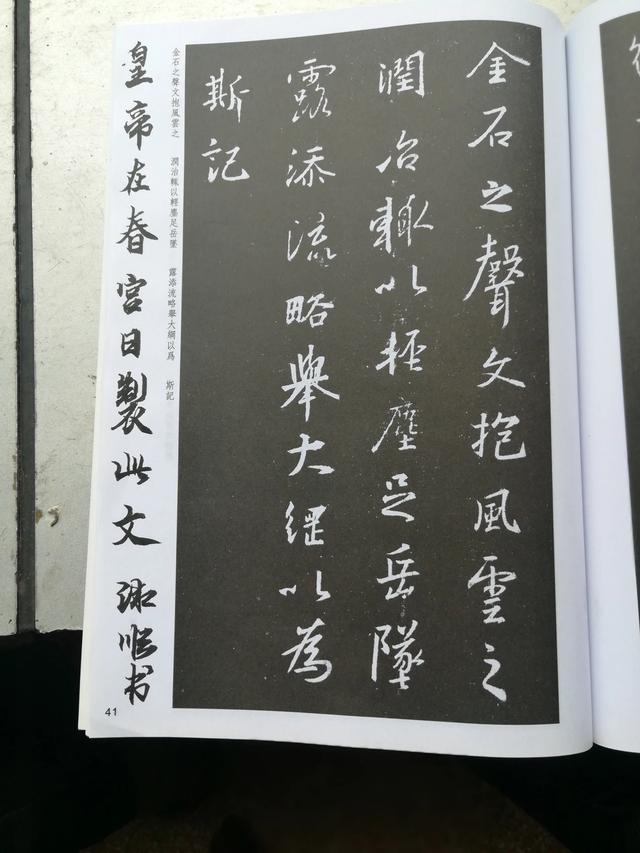 金石之聲文抱風雲之
潤治輒以輕塵足岳墜
露添流略舉大綱以為
斯記
金石之聲文抱風雲之 潤治輒以輕塵足岳墜 露添流略舉大綱以爲 斯記
皇帝在春宮日製此文 书
41